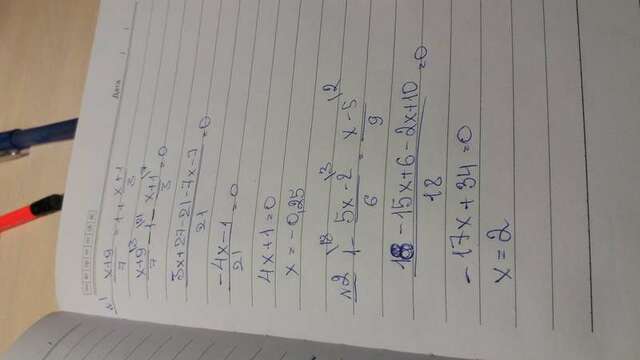 Дата
№1 (x+9)/7 = 1 + (x+1)/3
(x+9)/7 \3 - 1 \21 - (x+1)/3 \7 = 0
(3x+27-21-7x-7)/21 = 0
(-4x-1)/21 = 0
4x+1=0
x = -0,25
№2 1 \18 - (5x-2)/6 \3 = (x-5)/9 \2
(18-15x+6-2x+10)/18 = 0
-17x+34=0
x=2